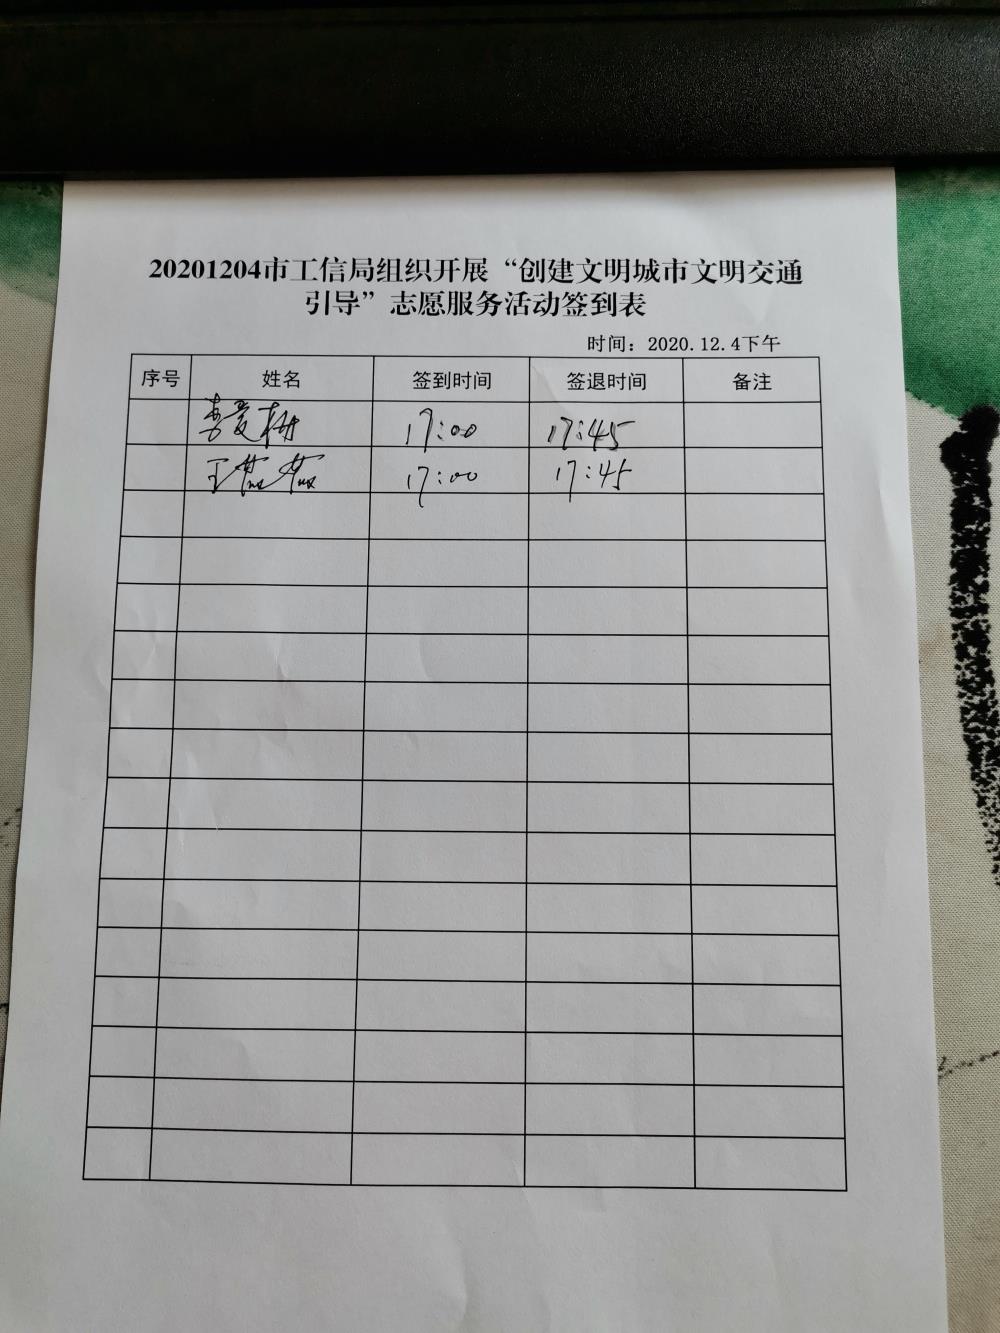 20201204市工信局组织开展“创建文明城市文明交通
引导”志愿服务活动签到表
时间：2020.12.4下午
序号 姓名 签到时间 签退时间 备注
李爱 17:00 17:45
王 17:00 17:45